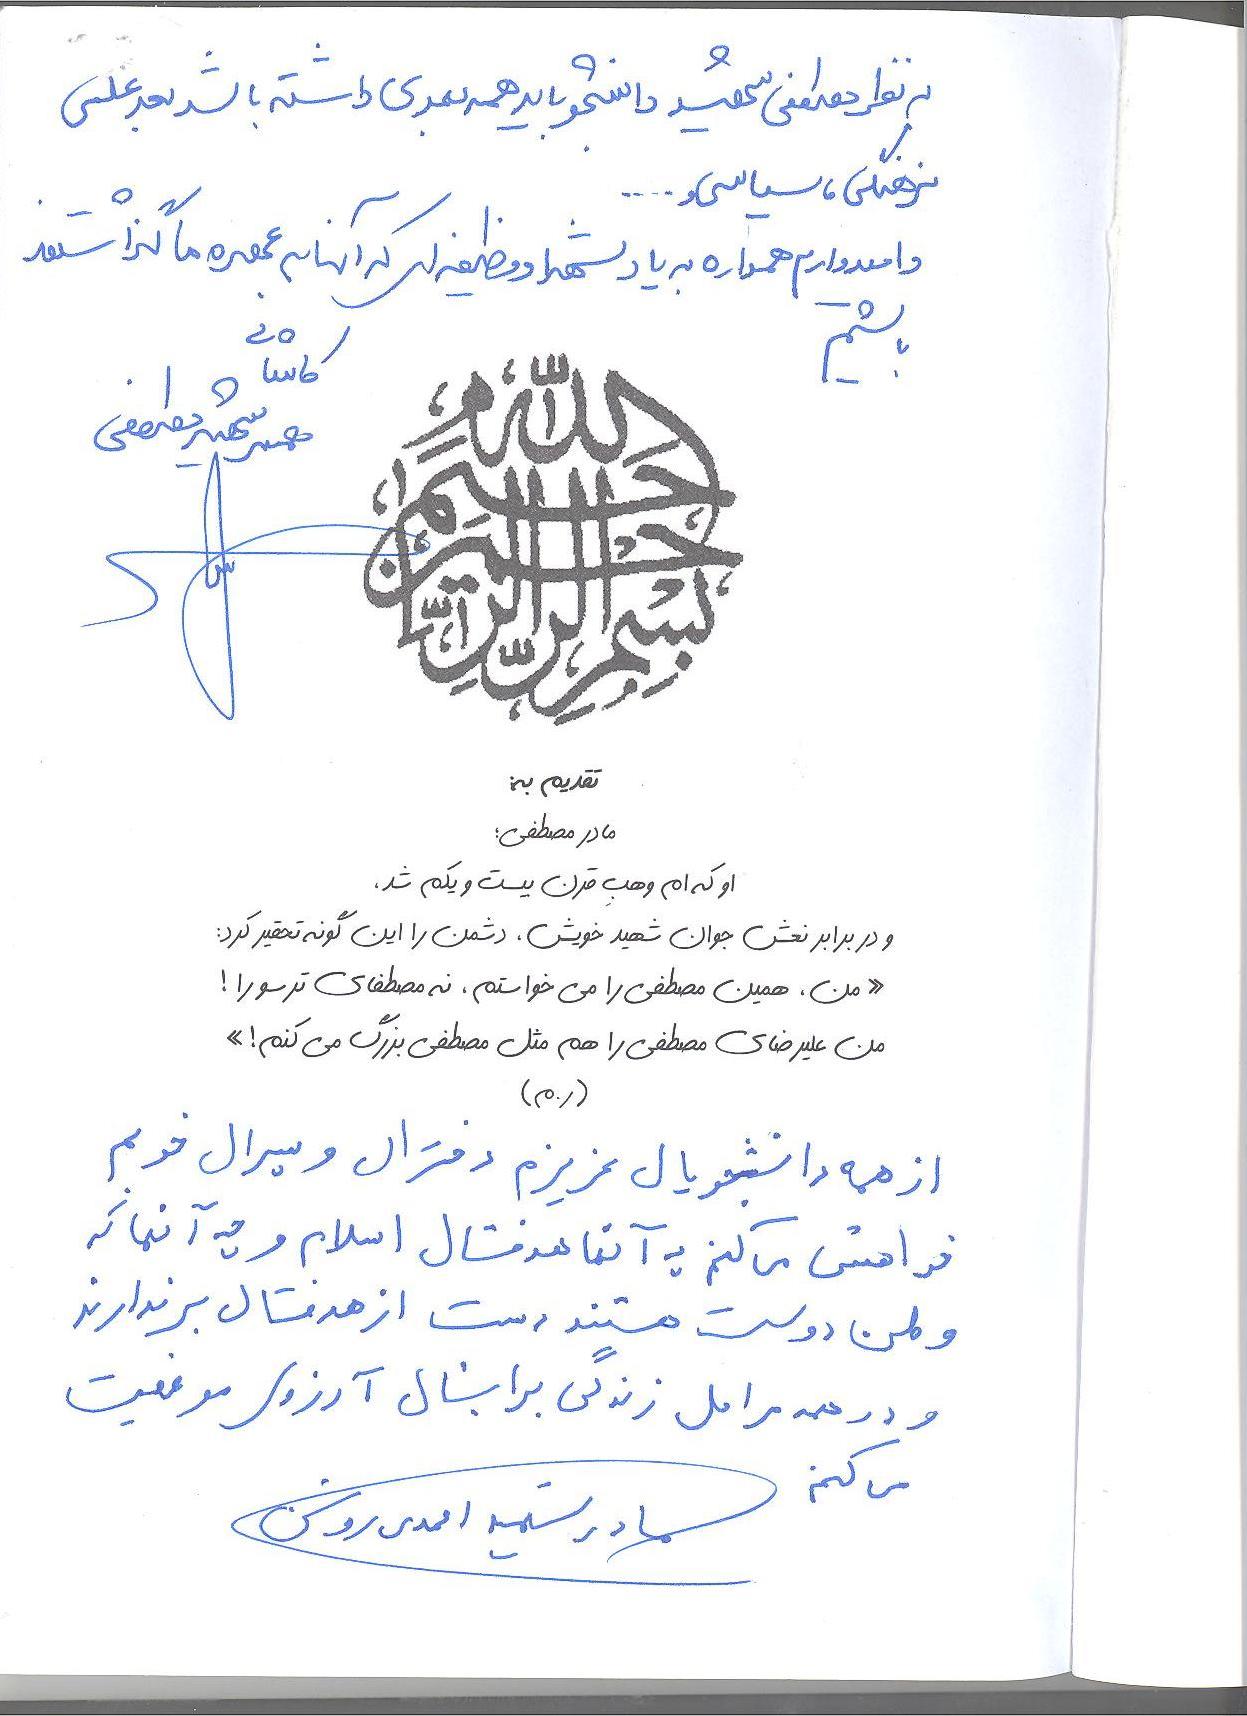 به نظر مصطفی شهید دانشجو باید همه بعدی داشته باشد بعد علمی
فرهنگی، سیاسی و ....
و امیدوارم همواره به یاد شهدا و وظیفه ای که آنها به عهده ما گذاشتند
باشیم
کاشانی
همسر شهید مصطفی
بسم الله الرحمن الرحیم
تقدیم به:
مادر مصطفی؛
او که ام وهبِ قرن بیست و یکم شد.
و در برابر نعش جوان شهید خویش، دشمن را این گونه تحقیر کرد:
«من، همین مصطفی را می خواستم، نه مصطفای ترسو را!
من علیرضای مصطفی را هم مثل مصطفی بزرگ می کنم!»
(ر.م)
از همه دانشجویان عزیزم دختران و پسران خوبم
خواهش می کنم چه آنها هدفشان اسلام و چه آنها که
وطن دوست هستند دست از هدفشان برندارند
و در همه مراحل زندگی برایشان آرزوی موفقیت
می کنم
مادر شهید احمدی روشن